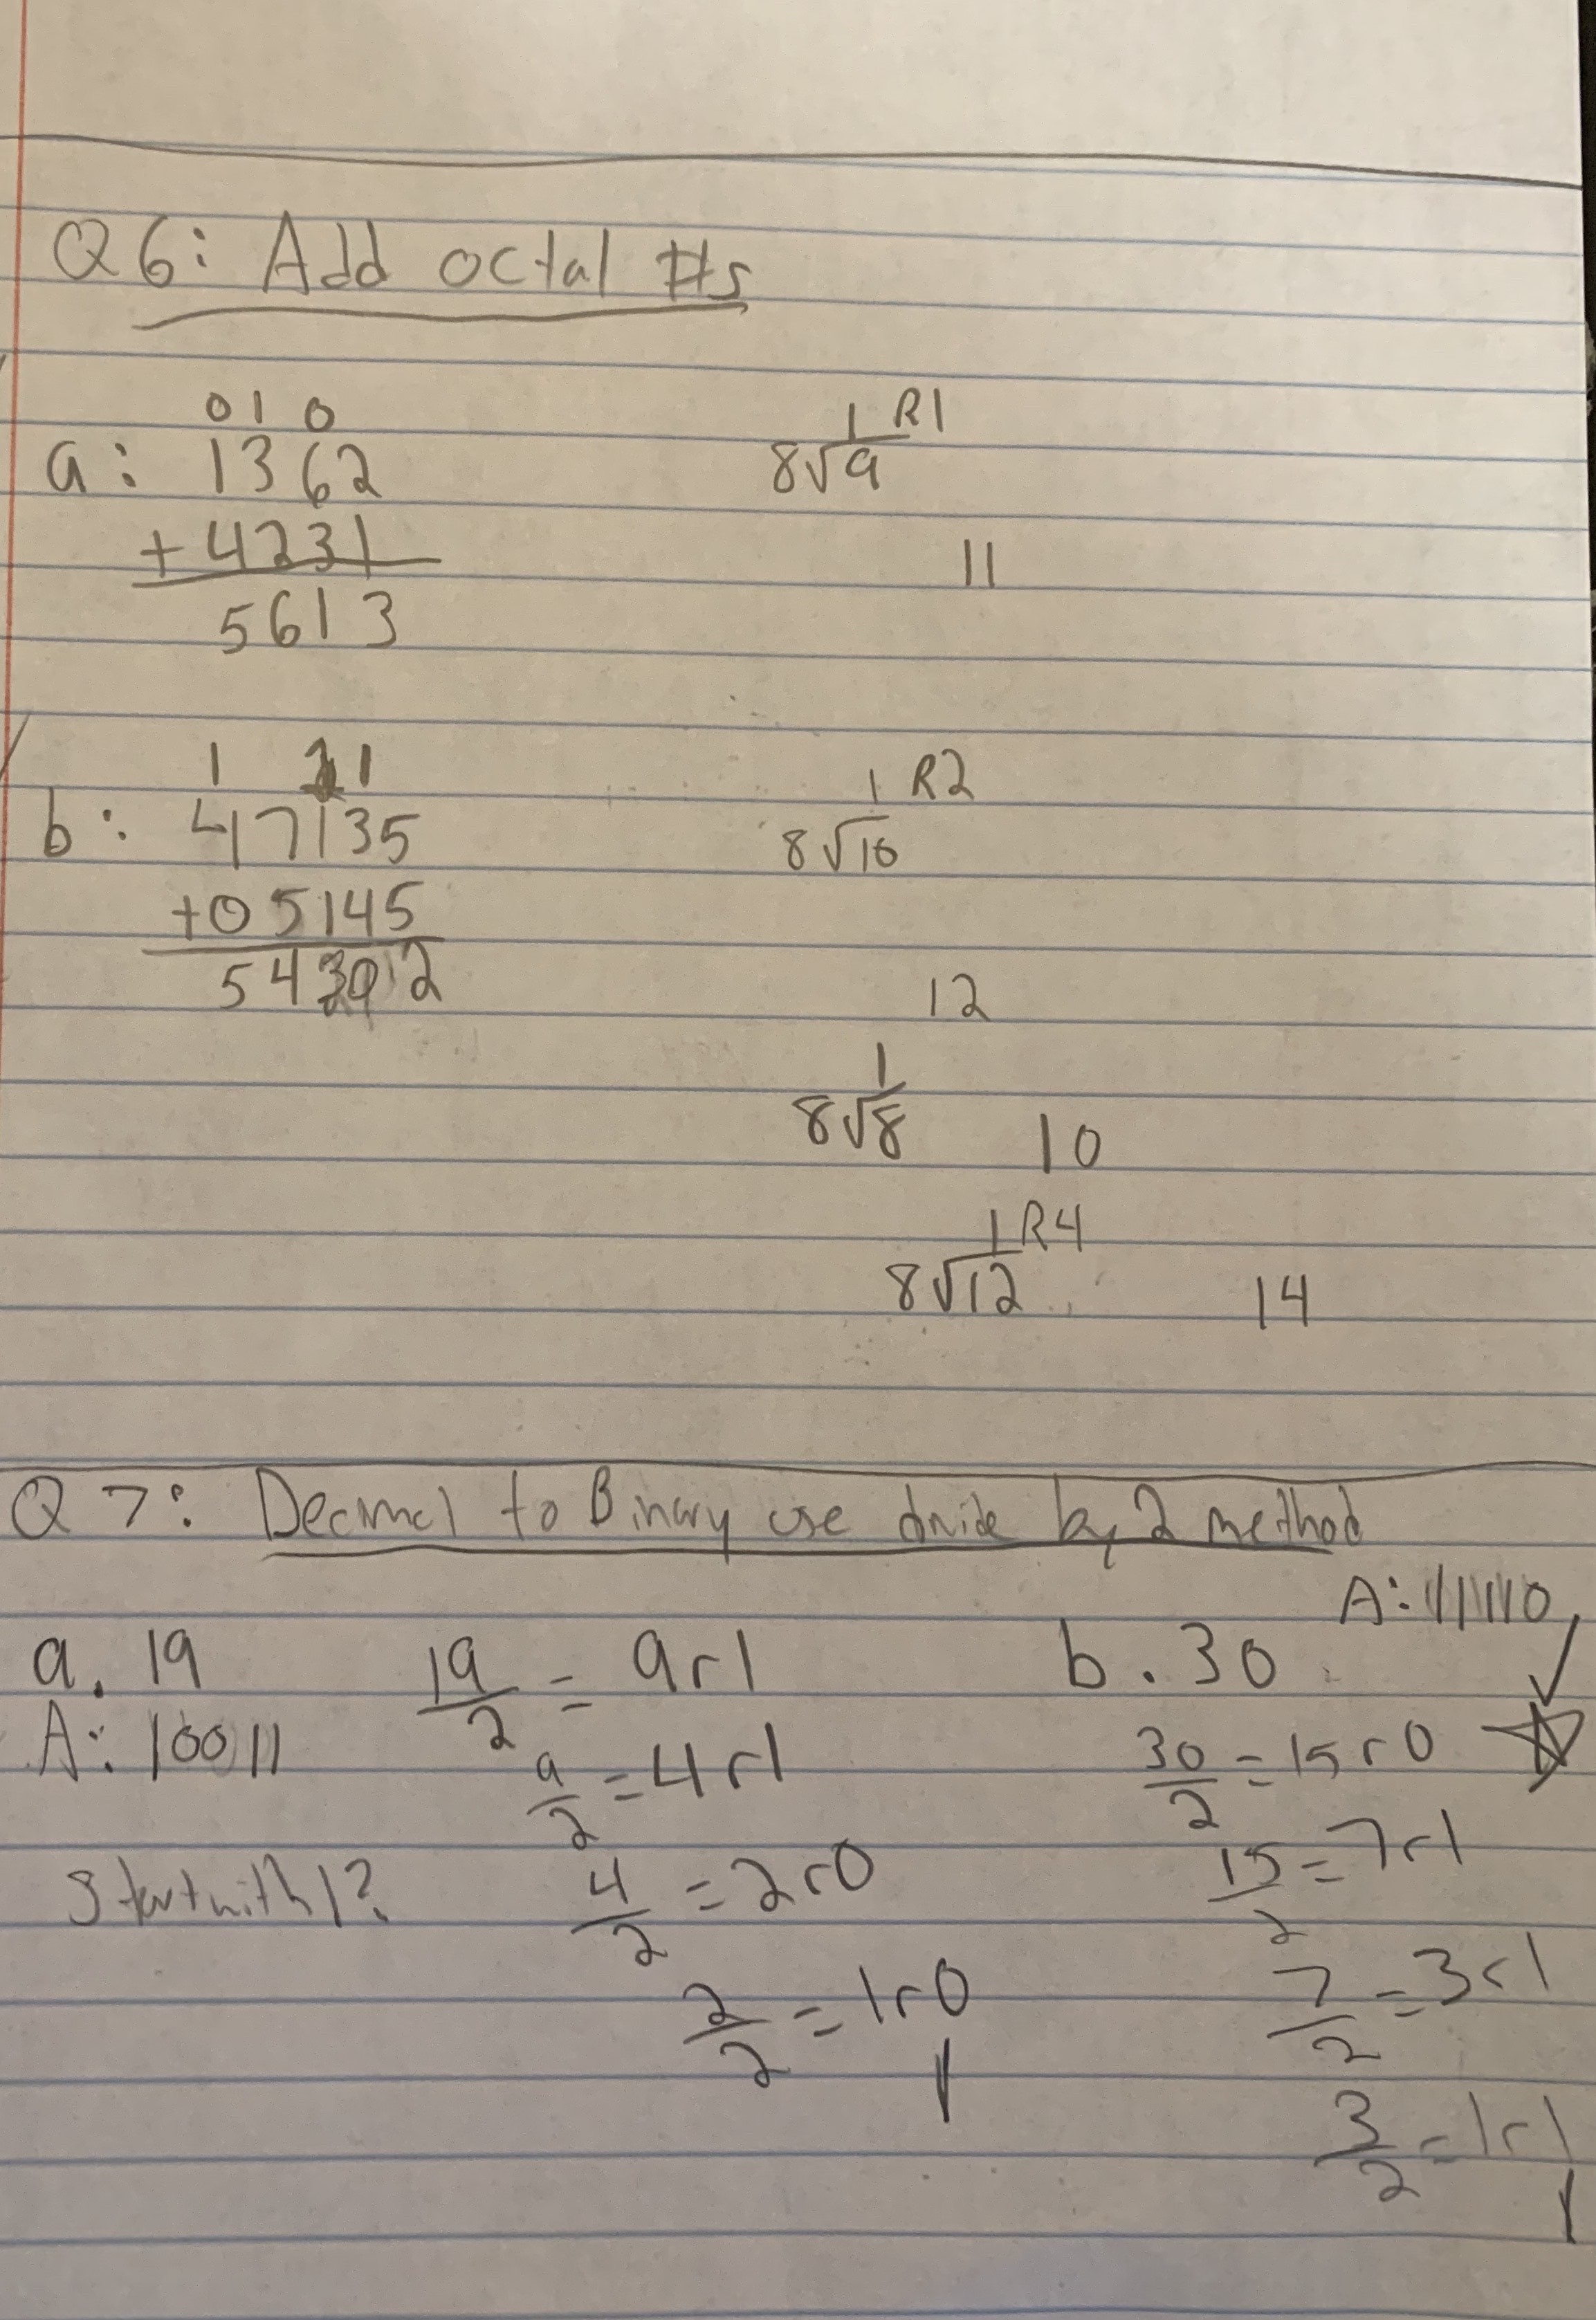 Q6: Add octal #s
010
a: 1362
+ 4231
5613
1 R1
8√9
11
1 1 1
b: 47135
+05145
54302
1 R2
8√10
12
1
8√8
10
1R4
8√12
14
Q7: Decimal to Binary use divide by 2 method
a. 19
A: 10011
Start with 1?
19/2 = 9r1
9/2 = 4r1
4/2 = 2r0
2/2 = 1r0
1
A: 11110
b. 30
30/2 = 15r0
15/2 = 7r1
7/2 = 3r1
3/2 = 1r1
1